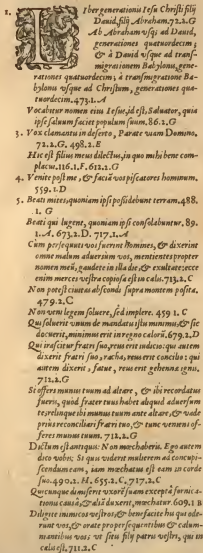 1. Liber generationis Iesu Christi filij
Dauid, filij Abraham. 72.2.G
Ab Abraham vsq; ad Dauid,
generationes quatuordecim;
& à Dauid vsque ad transf-
migrationem Babylonis, gene-
rationes quatuordecim; à transfmigratione Ba-
bylonis vsque ad Christum, generationes qua-
tuordecim. 473.1.A
Vocabitur nomen eius Iesus, id est, Saluator, quia
ipse saluum faciet populum suum. 86.2.G
3. Vox clamantis in deserto, Parate viam Domino,
72.2.G, 498.2.E
Hic est filius meus dilectus, in quo mihi bene com-
placui. 116.1.F, 612.2.G
4. Venite post me, & faciã vos piscatores hominum.
559.1.D
5. Beati mites, quoniam ipsi possidebunt terram. 488.
1. G
Beati qui lugent, quoniam ipsi consolabuntur. 89.
1.A. 673.2.D. 717.1.A
Cum persequuti vos fuerint homines, & dixerint
omne malum aduersum vos, mentientes propter
nomen meũ, gaudete in illa die, & exultate: ecce
enim merces vestra copiosa est in cælis. 713.2.C
Non potest ciuitas abscondi supra montem posita,
479.2.C
Non veni legem soluere, sed implere. 459 1. C
Qui soluerit vnum de mandatis istis minimis, & sic
docuerit, minimus erit in regno cælorũ. 679.2.D
Qui irascitur fratri suo, reus erit iudicio: qui autem
dixerit fratri suo, racha, reus erit concilio: qui
autem dixerit, fatue, reus erit gehennæ ignis.
712.2.G
Si offers munus tuum ad altare, & ibi recordatus
fueris, quod frater tuus habet aliquid aduersum
te, relinque ibi munus tuum ante altare, & vade
prius reconciliari fratri tuo, & tunc veniens of-
feres munus tuum. 712.2.G
Dictum est antiquis: Non mœchaberis. Ego autem
dico vobis: Si quis viderit mulierem ad concupi-
scendum eam, iam mœchatus est eam in corde
suo. 490.2.H. 655.2.C, 717.2.C
Quicunque dimiserit vxorẽ suam excepta fornica-
tionis causa, & aliã duxerit, mœchatur. 609.1 B
Diligite inimicos vestros, & benefacite his qui ode-
runt vos, & orate pro persequentibus & calum-
niantibus vos: vt sitis filij patris vestri, qui in
cælis est, 711.2.C